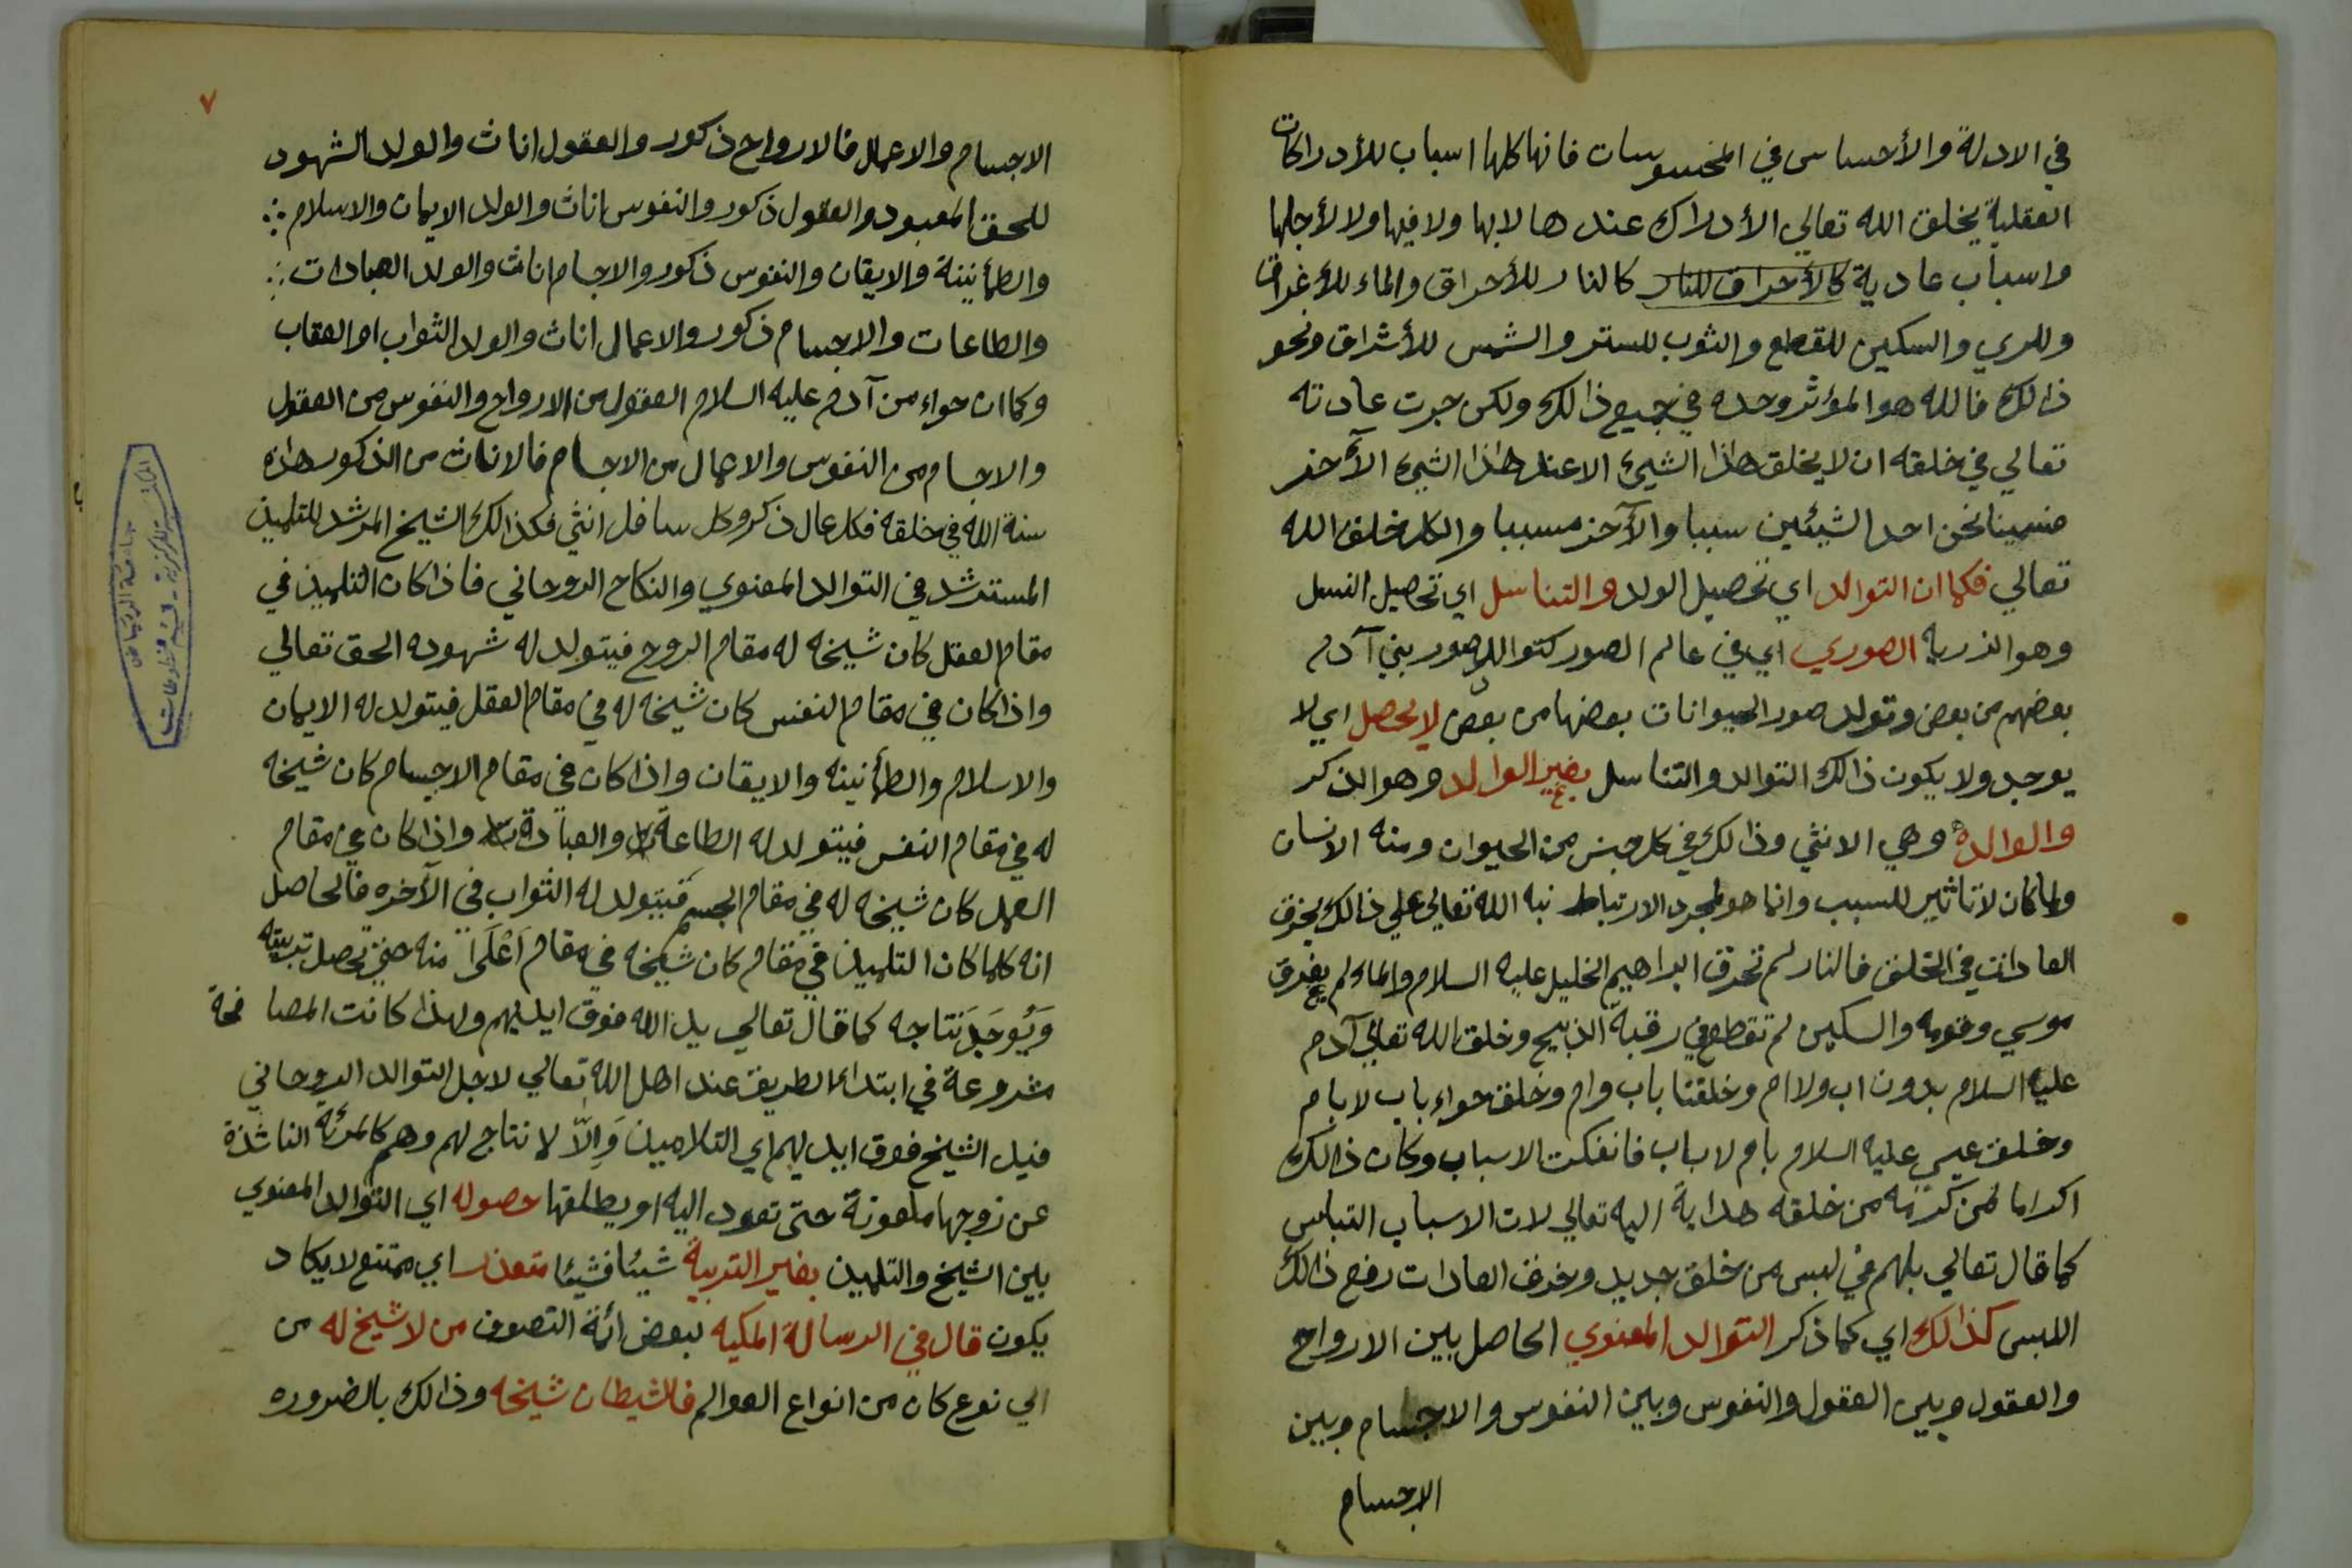 في الادلة والأحساس في المحسوسات فانها كلها اسباب للأدراكات
العقلية يخلق الله تعالي الأدراك عندها لا بها ولا فيها ولا لأجلها
واسباب عادية كالأحراق للنار كالنار للأحراق والماء للأغراق
وللري والسكين للقطع والثوب للستر والشمس للأشراق ونحو
ذالك فالله هو المؤثر وحده في جميع ذالك ولكن جرت عادته
تعالي في خلقه ان لا يخلق هاذا الشيئ الا عند هاذا الشيئ الآخر
فسمينا نحن احد الشيئين سببا والآخر مسببا والكل خلق الله
تعالي فكما ان التوالد اي تحصيل الولد والتناسل اي تحصيل النسل
وهو الذرية الصوري اي في عالم الصور كتوالد صور بني آدم
بعضهم من بعض وتولد صور الحيوانات بعضها من بعض لا يحصل اي لا
يوجد ولا يكون ذالك التوالد والتناسل بغير الوالد وهو الذكر
والوالدة وهي الانثي وذالك في كل جنس من الحيوان ومنه الانسان
ولما كان لا تاثير للسبب وانما هو لمجرد الارتباط نبه الله تعالي علي ذالك بخرق
العادات في الخلق فالنار لم تحرق ابراهيم الخليل عليه السلام والماء لم يغرق
موسي وقومه والسكين لم تقطع في رقبة الذبيح وخلق الله تعالي آدم
عليه السلام بدون اب ولا ام وخلقنا باب وام وخلق حواء باب لا بام
وخلق عيسي عليه السلام بام لا باب فانفكت الاسباب وكان ذالك
اكراما لمن كرمه من خلقه هداية اليه تعالي لان الاسباب التباس
كما قال تعالي بل هم في لبس من خلق جديد وخرق العادات رفع ذالك
اللبس كذالك اي كما ذكر التوالد المعنوي الحاصل بين الارواح
والعقول وبين العقول والنفوس وبين النفوس والاجسام وبين
الاجسام
٧
الاجسام والاعمال فالارواح ذكور والعقول اناث والولد الشهود
للحق المعبود والعقول ذكور والنفوس اناث والولد الايمان والاسلام
والطمأنينة والايقان والنفوس ذكور والاجسام اناث والولد العبادات
والطاعات والاجسام ذكور والاعمال اناث والولد الثواب او العقاب
وكما ان حواء من آدم عليه السلام العقول من الارواح والنفوس من العقول
والاجسام من النفوس والاعمال من الاجسام فالاناث من الذكور هاذه
سنة الله في خلقه فكل عال ذكر وكل سافل انثي فكذالك الشيخ المرشد للتلميذ
المسترشد في التوالد المعنوي والنكاح الروحاني فاذا كان التلميذ في
مقام العقل كان شيخه له مقام الروح فيتولد له شهوده الحق تعالي
واذا كان في مقام النفس كان شيخه له في مقام العقل فيتولد له الايمان
والاسلام والطمأنينه والايقان واذا كان في مقام الاجسام كان شيخه
له في مقام النفس فيتولد له الطاعة والعبادة واذا كان في مقام
العمل كان شيخه له في مقام الجسم فيتولد له الثواب في الآخره فالحاصل
انه كلما كان التلميذ في مقام كان شيخه في مقام أعْلَا منه حتي تحصل تربيته
وَيُوجَدَ نتاجه كما قال تعالي يد الله فوق ايديهم ولهذا كانت المصافحة
مشروعة في ابتداء الطريق عند اهل الله تعالي لاجل التوالد الروحاني
فيد الشيخ فوق ايديهم اي التلاميذ وَإِلَّا لا نتاج لهم وهم كالمرئة الناشذة
عن زوجها ملعونة حتى تعود اليه او يطلقها حصوله اي التوالد المعنوي
بين الشيخ والتلميذ بغير التربية شيئا فشيئا متعذر اي ممتنع لا يكاد
يكون قال في الرسالة المكيه لبعض ائمة التصوف من لا شيخ له من
اي نوع كان من انواع العوالم فالشيطان شيخه وذالك بالضروره